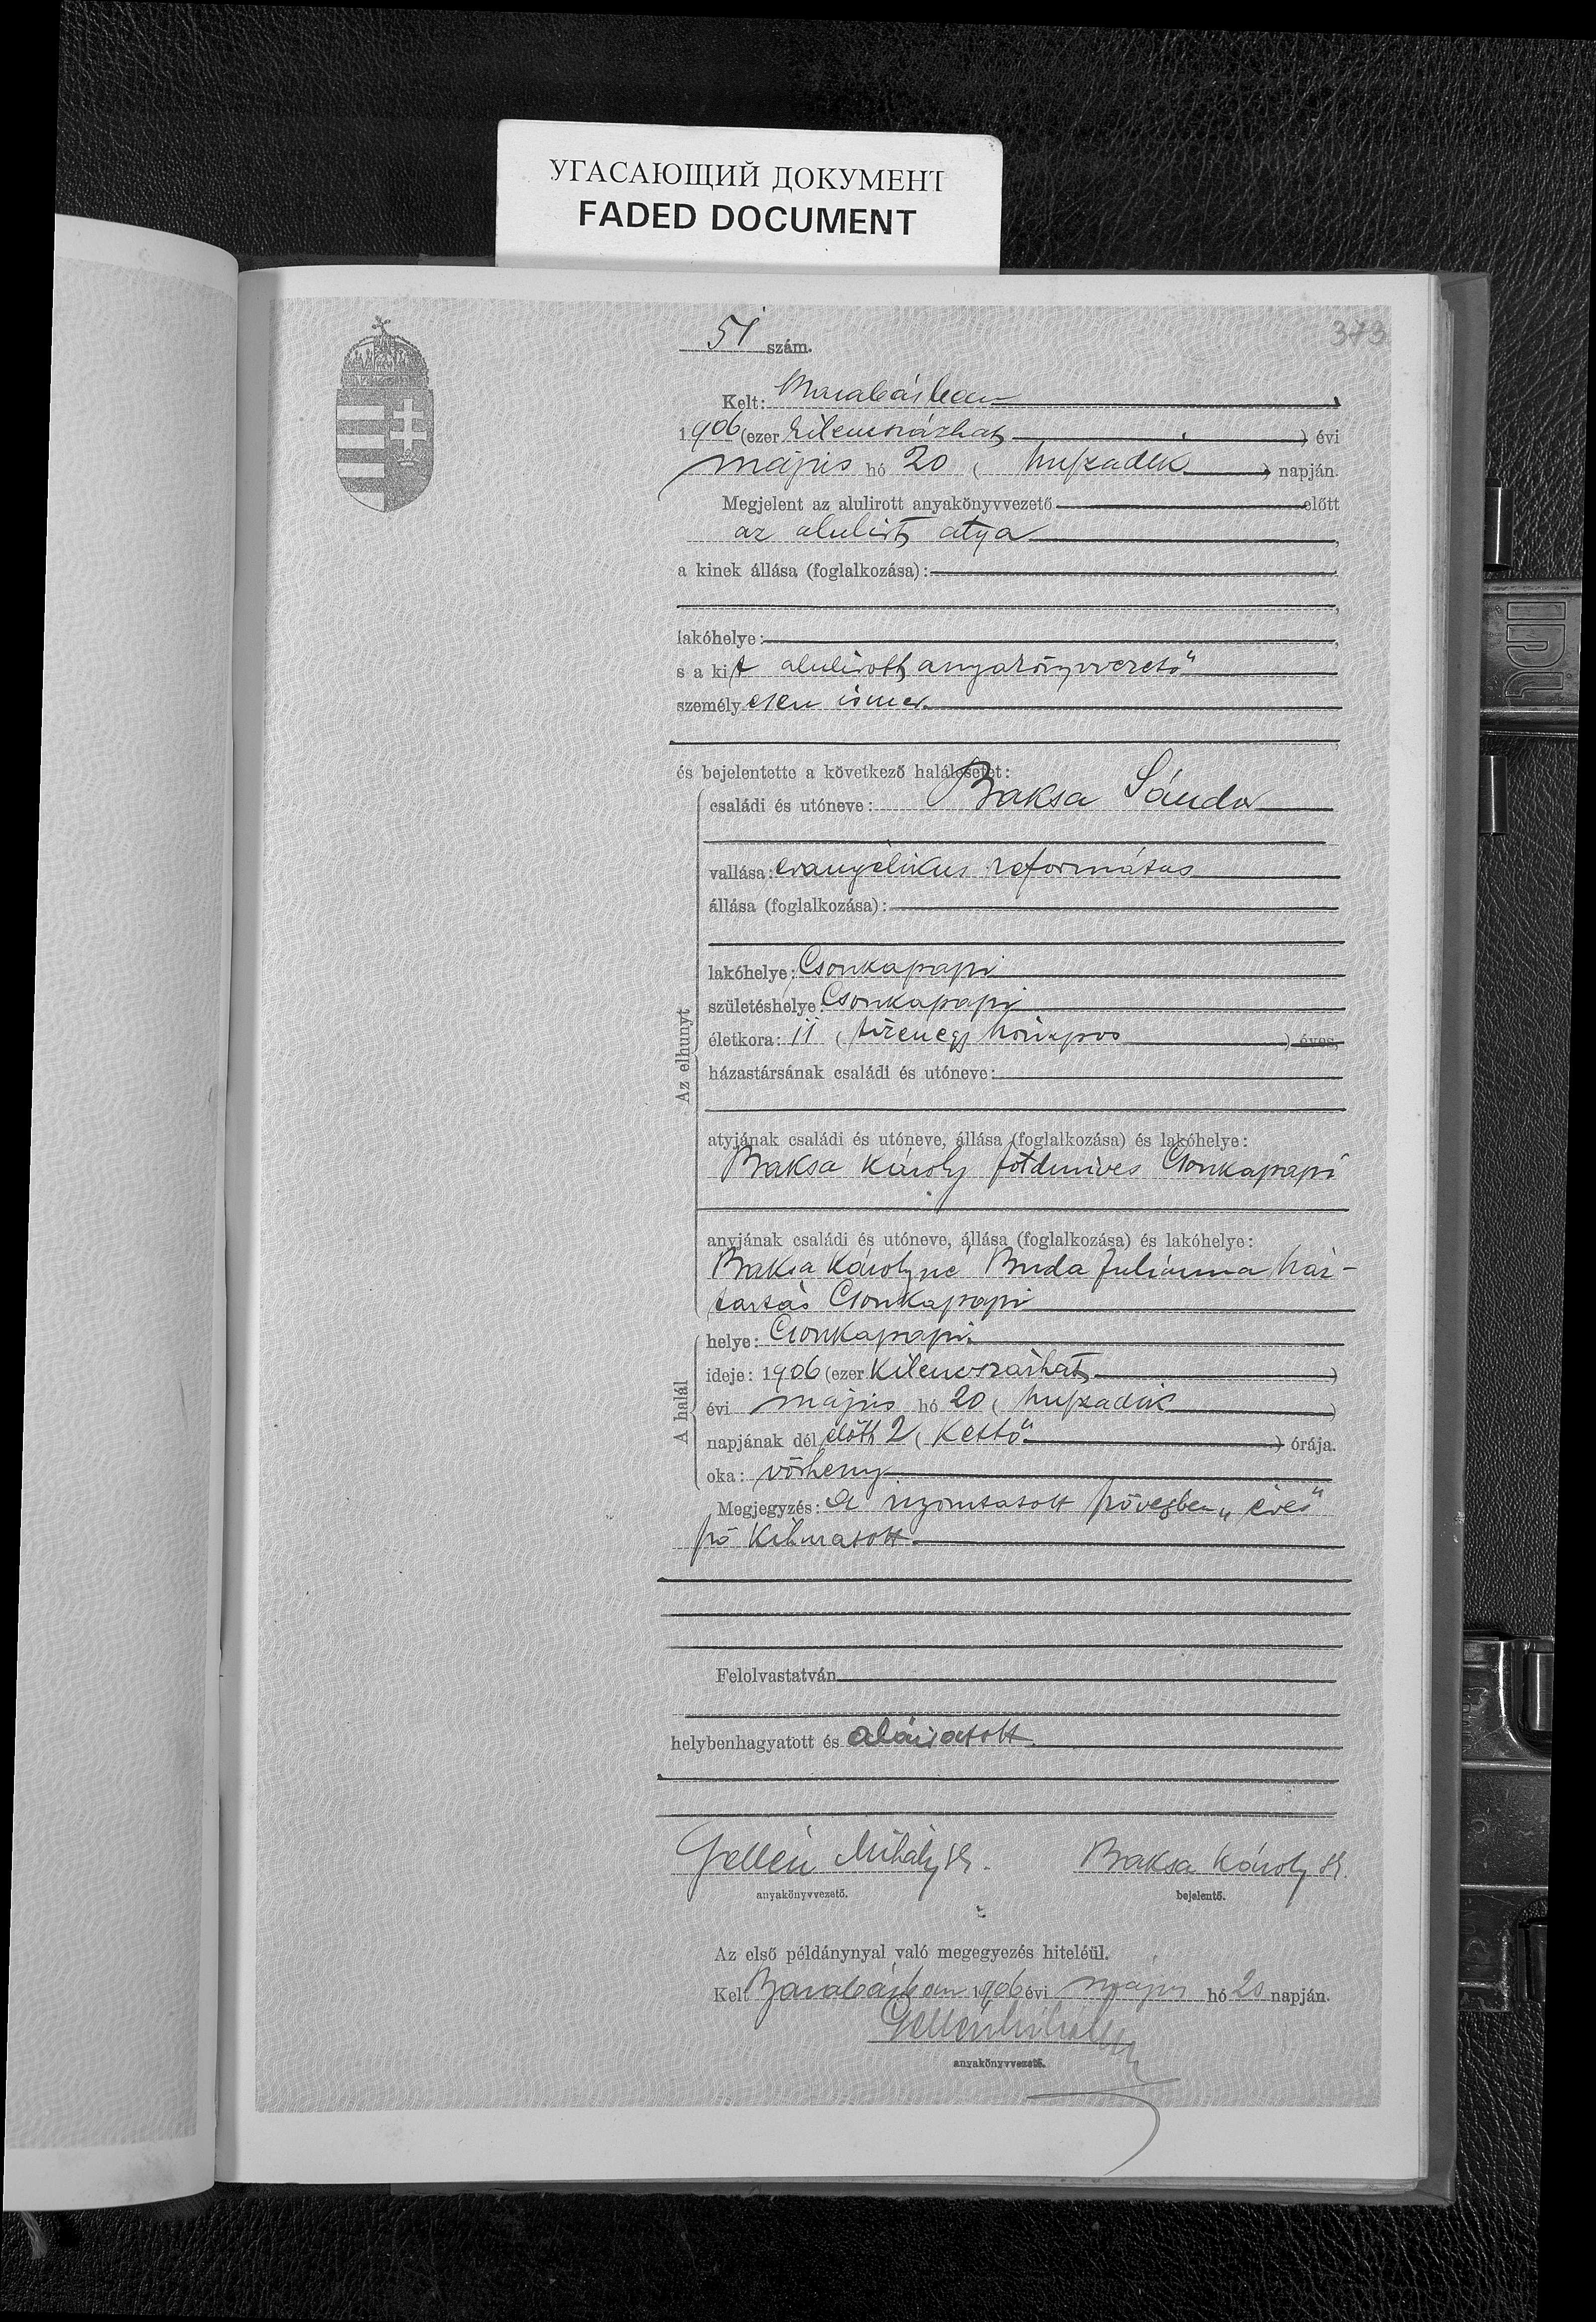 УГАСАЮЩИЙ ДОКУМЕНТ
FADED DOCUMENT
373
51 szám.
Kelt: Barabásban
1906 (ezer kilencszázhat) évi
május hó 20 (huszadik) napján.
Megjelent az alulirott anyakönyvvezető előtt
az alulirt atya,
a kinek állása (foglalkozása):
lakóhelye:
s a kit alulirott anyakönyvvezető
személyesen ismer.
és bejelentette a következő halálesetet:
Az elhunyt
családi és utóneve: Baksa Sándor
vallása: evangélikus református
állása (foglalkozása):
lakóhelye: Csonkapapi
születéshelye: Csonkapapi
életkora: 11 (tizenegy hónapos) éves,
házastársának családi és utóneve:
atyjának családi és utóneve, állása (foglalkozása) és lakóhelye:
Baksa Károly földmives Csonkapapi
anyjának családi és utóneve, állása (foglalkozása) és lakóhelye:
Baksa Károlyné Buda Juliánna ház-
tartás Csonkapapi
A halál
helye: Csonkapapi
ideje: 1906 (ezer kilencszázhat)
évi május hó 20 (huszadik)
napjának dél előtt 2 (kettő) órája.
oka: vörheny
Megjegyzés: A nyomtatott szövegben „éves"
szó kihuzatott
Felolvastatván
helybenhagyatott és aláiratott.
Gellén Mihály sk. Baksa Károly sk.
anyakönyvvezető. bejelentő.
Az első példánynyal való megegyezés hiteléül.
Kelt Barabásban 1906 évi május hó 20 napján.
Gellén Mihály
anyakönyvvezető.